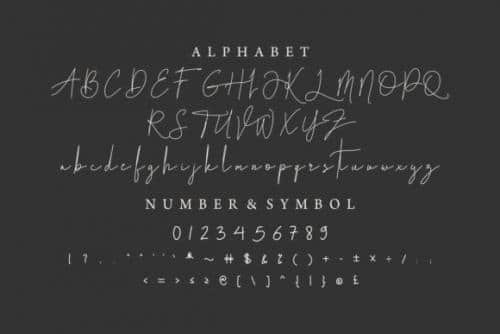 ALPHABET
ABCDEFGHIJKLMNOPQ
RSTUVWXYZ
abcdefghijklmnopqrstuvwxyz
NUMBER & SYMBOL
0123456789
~ # $ & ( ) + - ± × ÷ /
< = > ≤ ≥ @ [ \ ] ^ { | } £